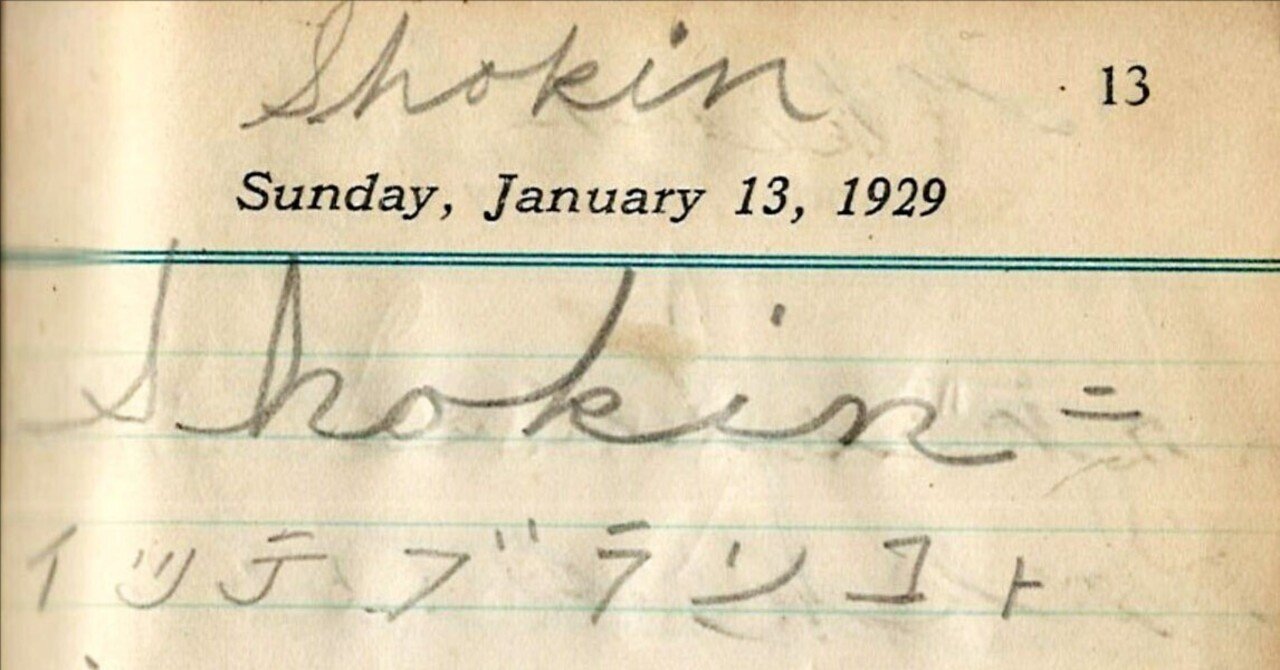 Shokin 13
Sunday, January 13, 1929
Shokin ニ
イッテブランコト